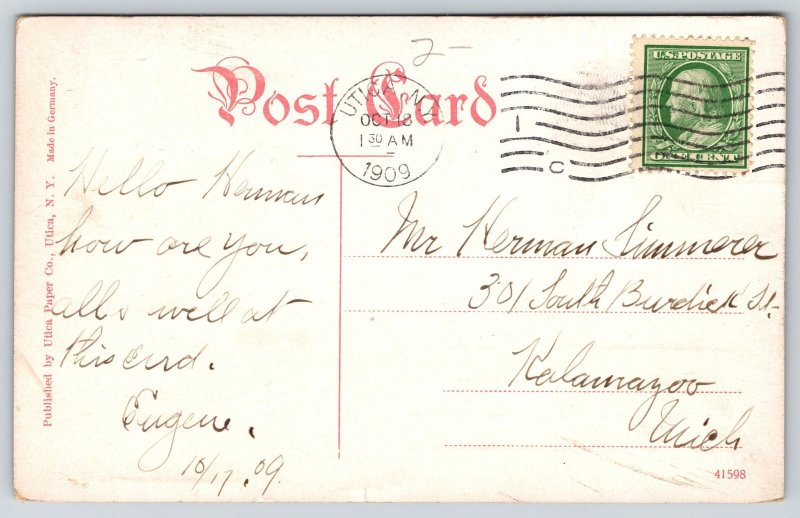 Published by Utica Paper Co., Utica, N. Y. Made in Germany.
Post Card
2-
UTICA, N.Y.
OCT 18
1 30 AM
1909
1
C
U.S. POSTAGE
ONE CENT
Hello Herman
how are you,
alls well at
this end.
Eugene.
10/17.09.
Mr Herman Simmerer
301 South Burdick St.
Kalamazoo
Mich
41598